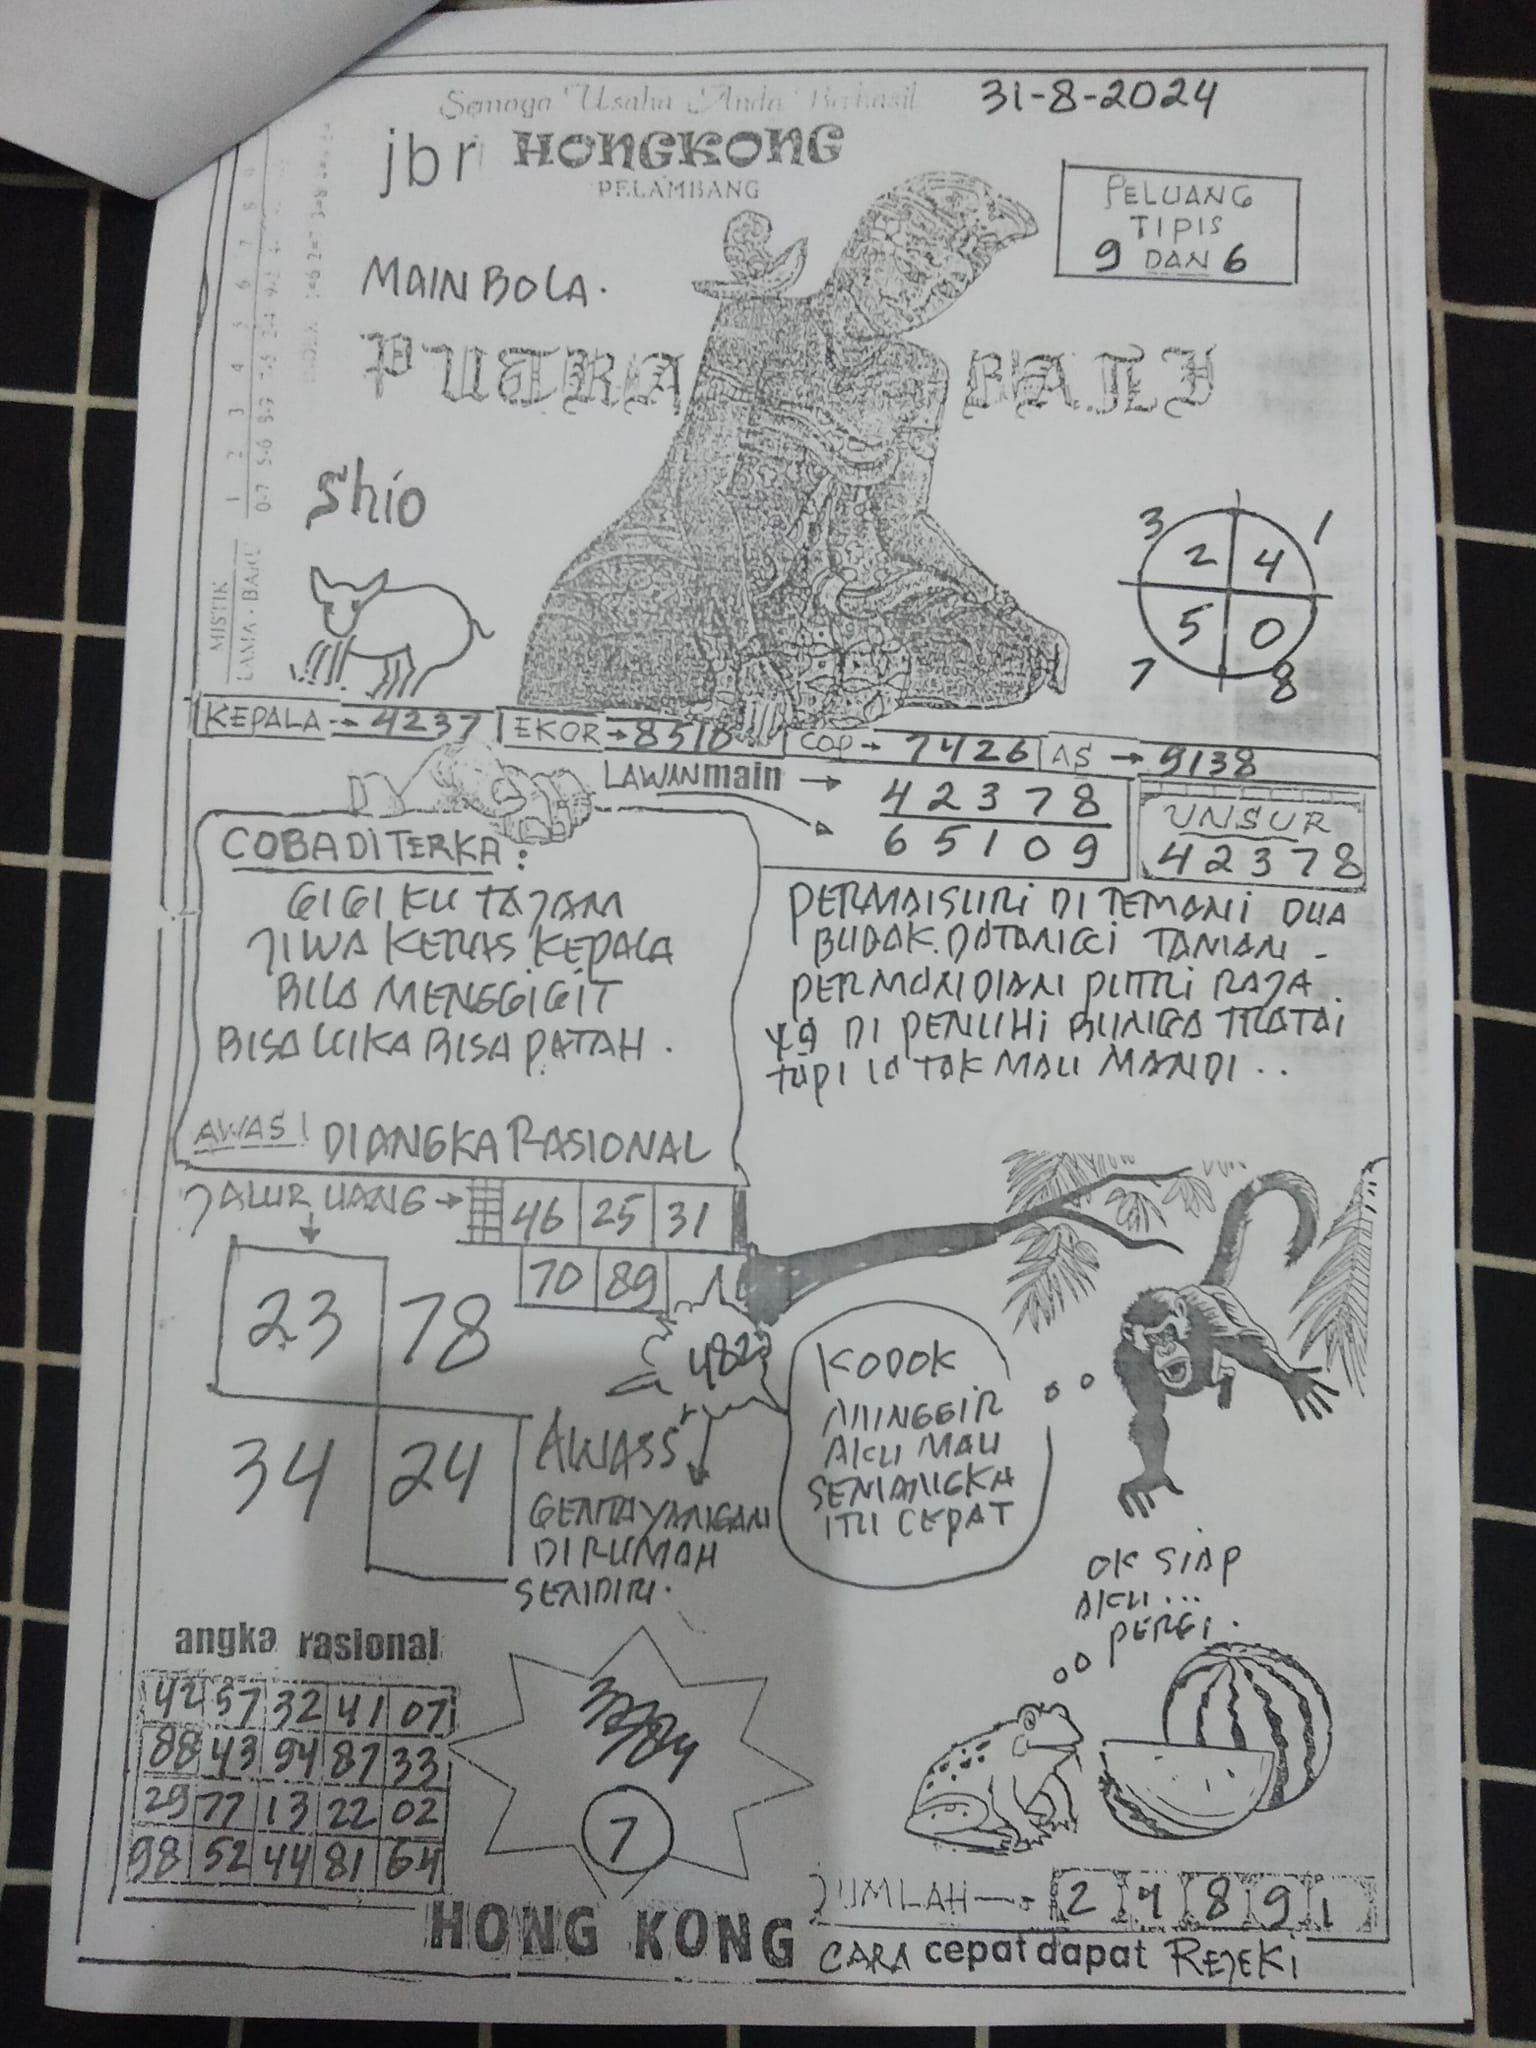 Semoga Usaha Anda Berhasil
31-8-2024
jbr HONGKONG
PELAMBANG
PELUANG
TIPIS
9 DAN 6
MAIN BOLA.
PUTRA BALI
Shio
3 1
2 4
5 0
7 8
MISTIK
LAMA - BARU
KEPALA → 4237
EKOR → 8510
COP → 7426
AS → 9138
LAWAN main →
42378
65109
UNSUR
42378
COBA DI TERKA :
GIGI KU TAJAM
JIWA KERAS KEPALA
BILA MENGGIGIT
BISA LUKA BISA PATAH.
AWAS! DI ANGKA RASIONAL
PERMAISURI DI TEMANI DUA
BUDAK. DATANGI TAMAN
PERMANDIAN PUTRI RAJA
YG DI PENUHI BUNGA TRATAI
TAPI IA TAK MAU MANDI..
JALUR UANG →
46 25 31
70 89
23 78
34 24
482
AWASS
GENTAYANGAN
DI RUMAH
SENDIRI.
KODOK
MINGGIR
AKU MAU
SEMANGKA
ITU CEPAT
OK SIAP
AKU...
PERGI.
angka rasional
42 57 32 41 07
88 43 94 87 33
29 77 13 22 02
98 52 44 81 64
7
HONG KONG
JUMLAH → 2 4 8 9 1
CARA cepat dapat REJEKI